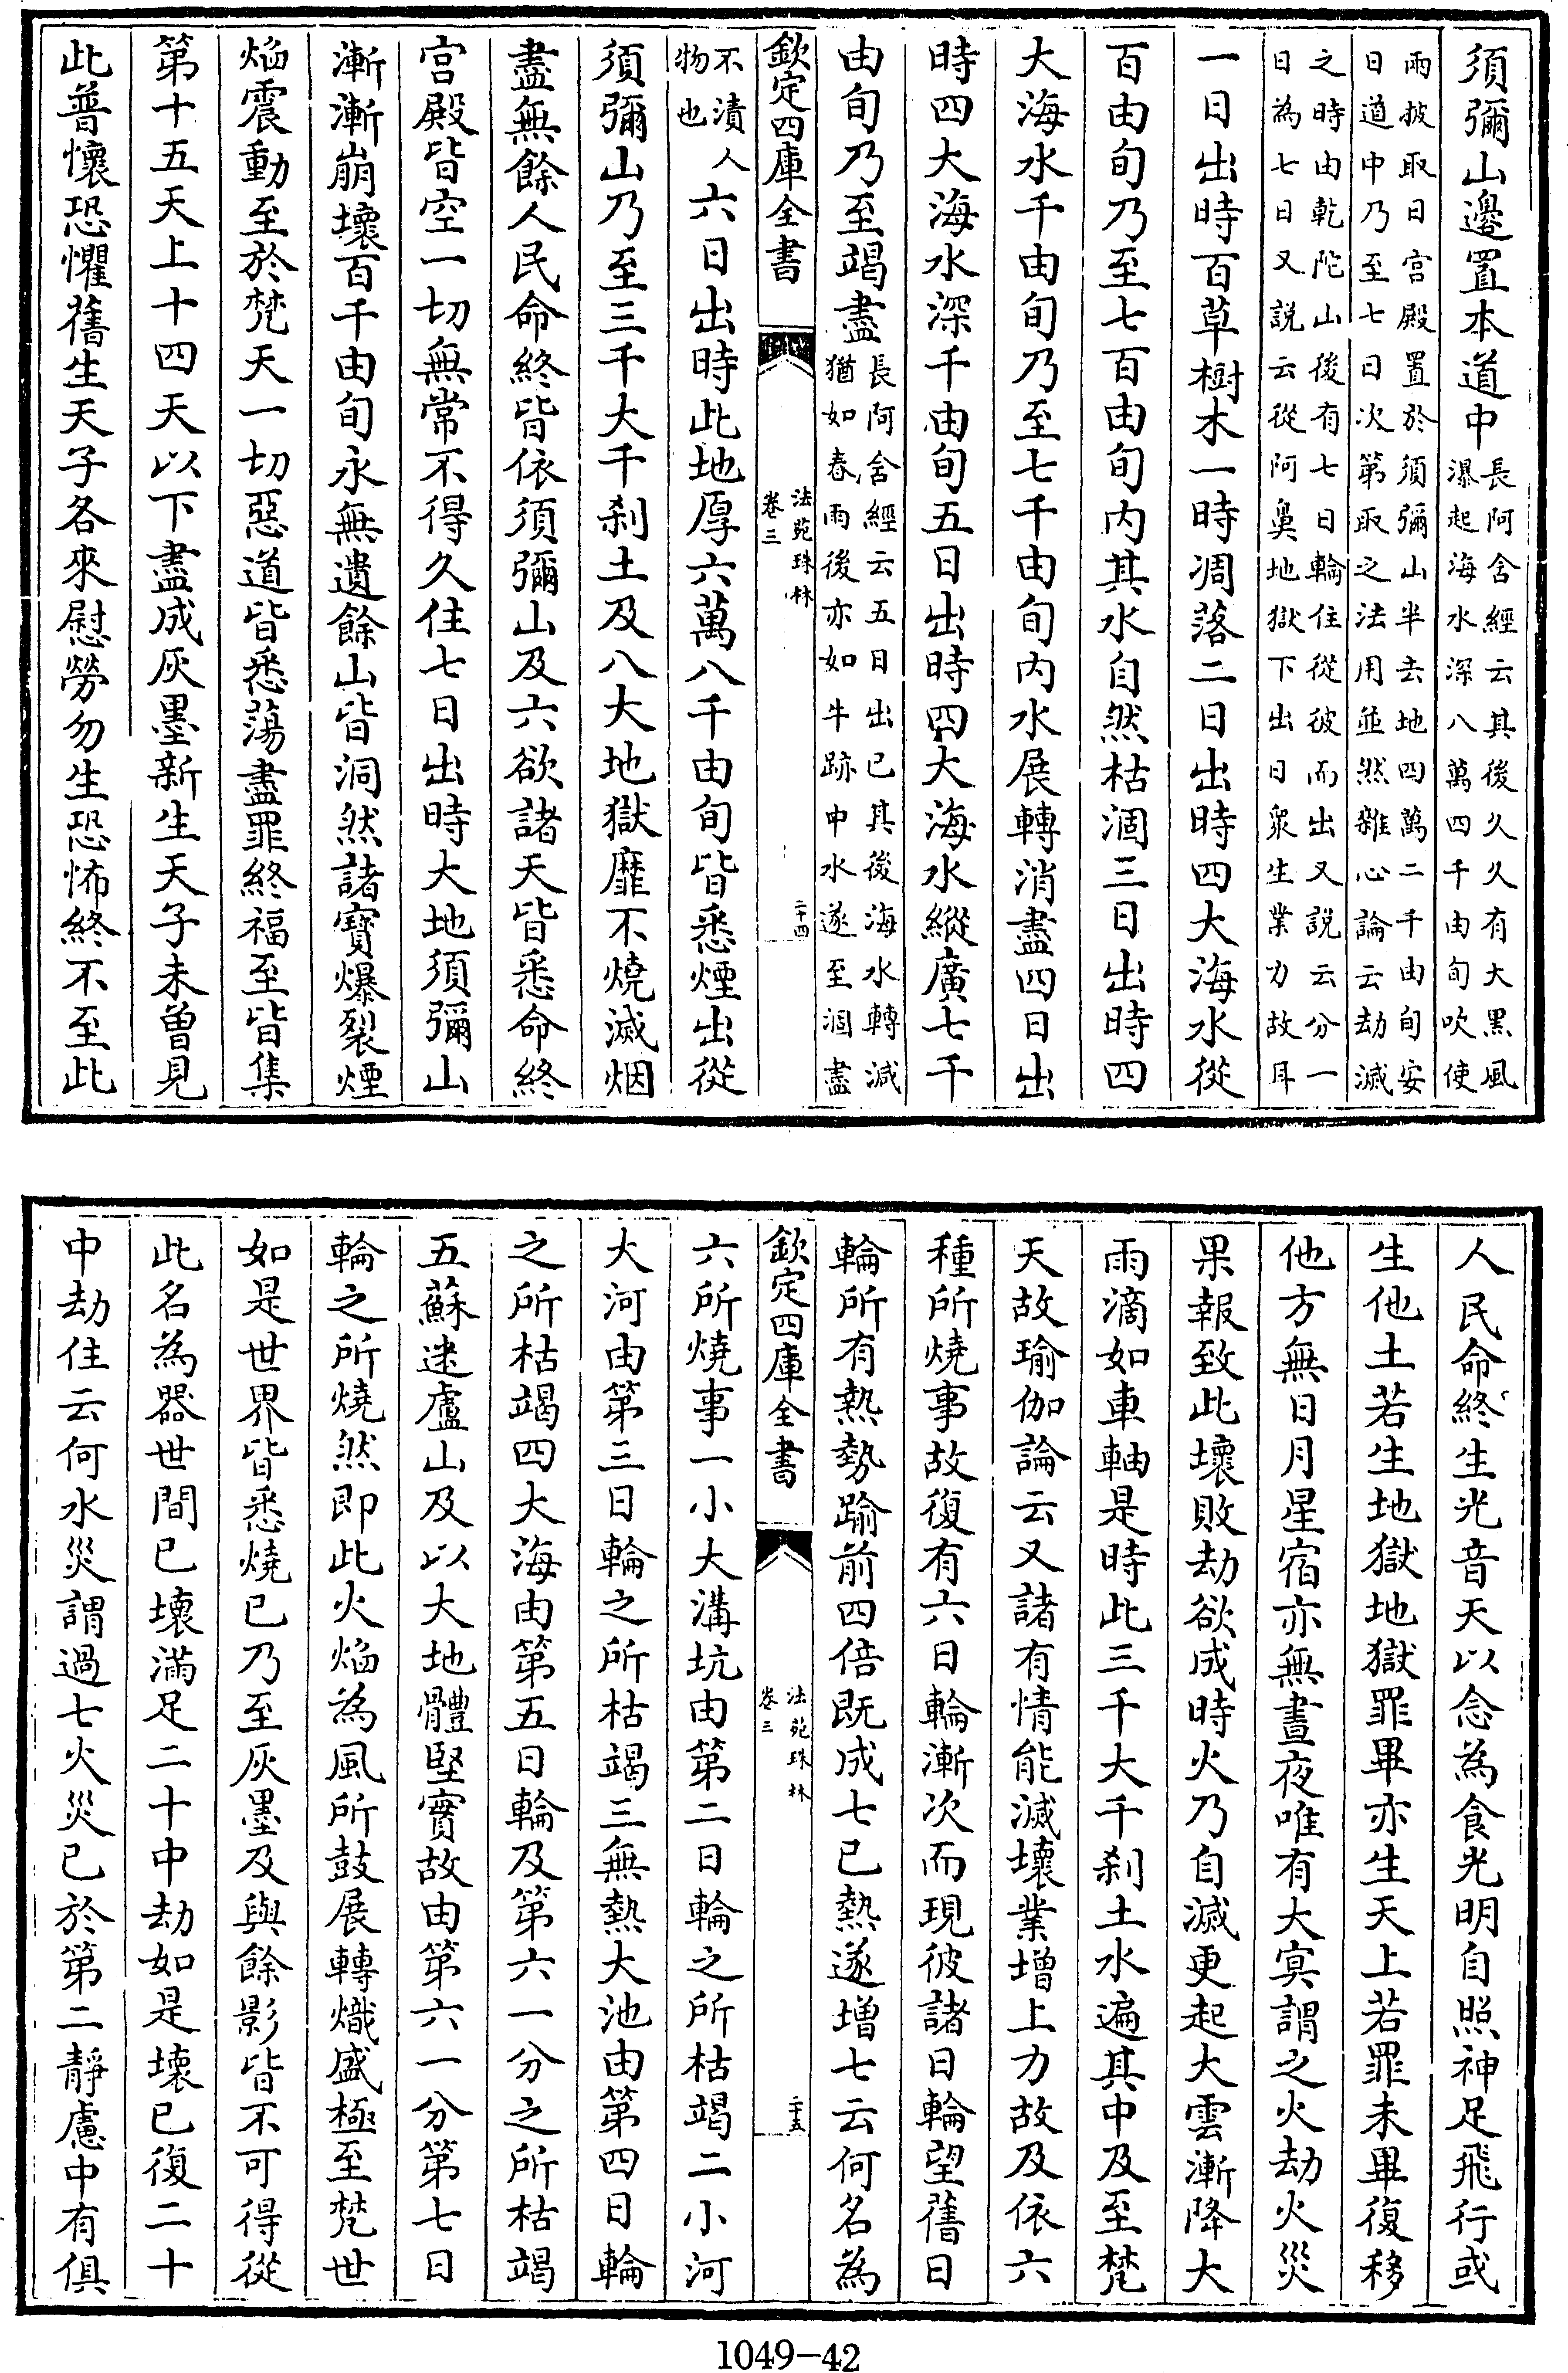 須彌山邊置本道中長阿含經云其後久久有大黑風瀑起海水深八萬四千由旬吹使
雨披取日宫殿置於須彌山半去地四萬二千由旬安日道中乃至七日次第取之法用並然雜心論云劫減
之時由乾陀山後有七日輪住從彼而出又説云分一日為七日又説云從阿鼻地獄下出日衆生業力故耳
一日出時百草樹木一時凋落二日出時四大海水從
百由旬乃至七百由旬内其水自然枯涸三日出時四
大海水千由旬乃至七千由旬内水展轉消盡四日出
時四大海水深千由旬五日出時四大海水縱廣七千
由旬乃至竭盡長阿含經云五日出已其後海水轉減猶如春雨後亦如牛跡中水遂至涸盡
欽定四庫全書
法苑珠林
卷三
二十四
不漬人物也六日出時此地厚六萬八千由旬皆悉煙出從
須彌山乃至三千大千刹土及八大地獄靡不燒滅烟
盡無餘人民命終皆依須彌山及六欲諸天皆悉命終
宫殿皆空一切無常不得久住七日出時大地須彌山
漸漸崩壞百千由旬永無遺餘山皆洞然諸寶爆裂煙
焰震動至於梵天一切惡道皆悉蕩盡罪終福至皆集
第十五天上十四天以下盡成灰墨新生天子未曽見
此普懷恐懼舊生天子各來慰勞勿生恐怖終不至此
人民命終生光音天以念為食光明自照神足飛行或
生他土若生地獄地獄罪畢亦生天上若罪未畢復移
他方無日月星宿亦無晝夜唯有大㝠謂之火劫火災
果報致此壞敗劫欲成時火乃自滅更起大雲漸降大
雨滴如車軸是時此三千大千刹土水遍其中及至梵
天故瑜伽論云又諸有情能滅壞業增上力故及依六
種所燒事故復有六日輪漸次而現彼諸日輪望舊日
輪所有熱勢踰前四倍既成七已熱遂増七云何名為
欽定四庫全書
法苑珠林
卷三
二十五
六所燒事一小大溝坑由第二日輪之所枯竭二小河
大河由第三日輪之所枯竭三無熱大池由第四日輪
之所枯竭四大海由第五日輪及第六一分之所枯竭
五蘇迷盧山及以大地體堅實故由第六一分第七日
輪之所燒然即此火焰為風所鼓展轉熾盛極至梵世
如是世界皆悉燒已乃至灰墨及與餘影皆不可得從
此名為器世間已壞滿足二十中劫如是壞已復二十
中劫住云何水災謂過七火災已於第二靜慮中有俱
1049-42